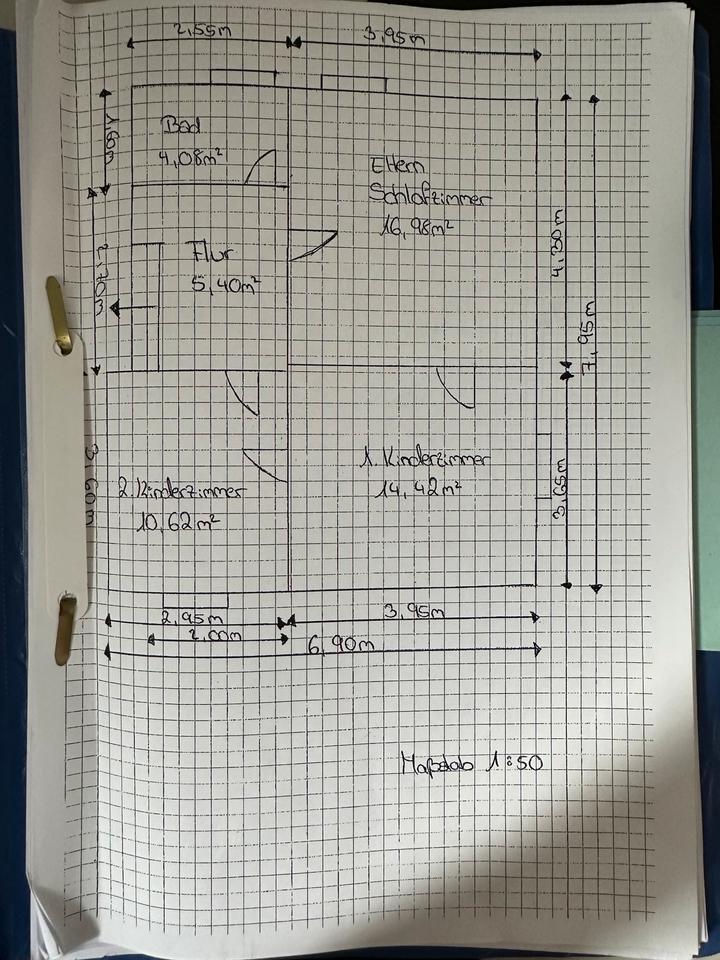 2,55m
3,95m
1,60m
Bad
4,08m²
Eltern
Schlafzimmer
16,98m²
4,30m
7,95m
Flur
5,40m²
2,70m
1. Kinderzimmer
14,42m²
3,65m
3,60m
2. Kinderzimmer
10,62m²
2,95m
3,95m
2,00m
6,90m
Maßstab 1:50